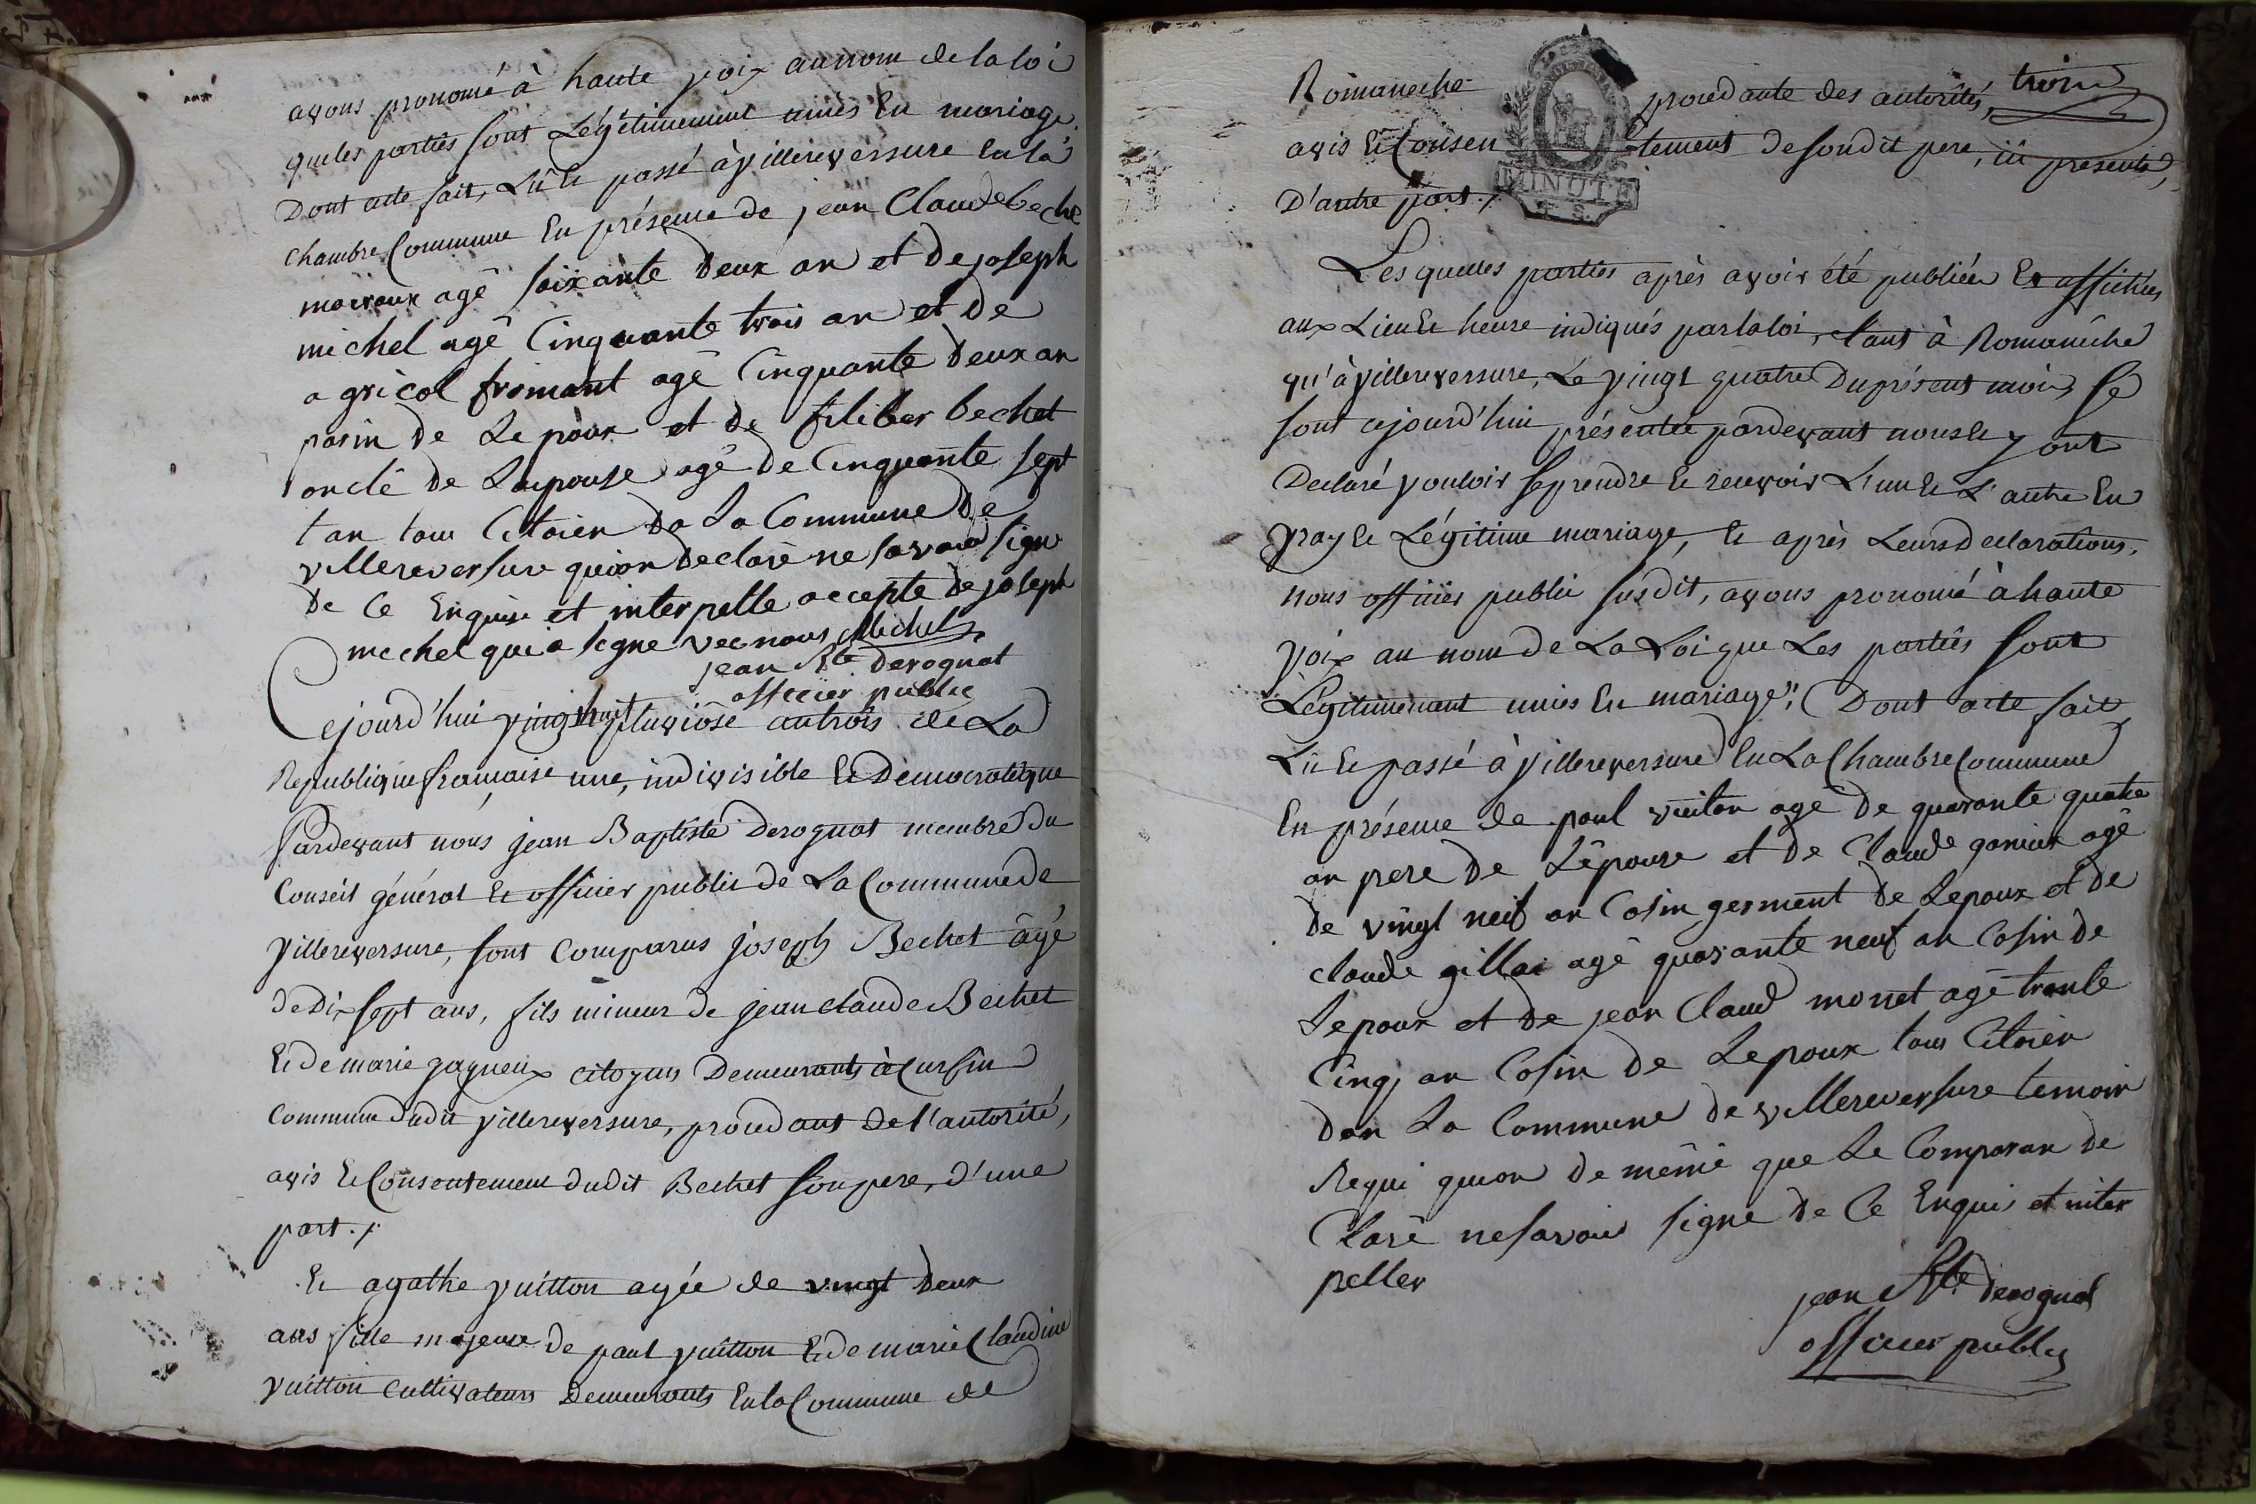 avons prononcé à haute voix au nom de la loi
que les parties sont Légitimement unies En mariage.
Dont acte fait, Lû Et passé à villereversure En la
chambre Commune En présence de jean Claude beche
agé soixante deux an et de joseph
michel agé Cinquante trois an et de
agricol fromant agé Cinquante deux an
parin de Lepoux et de filiber bechet
oncle de Lepouse agé de Cinquante sept
tan tous Citoien de La Commune de
villereversure quion declaré ne savoir signe
de Ce Enquis et interpelle accepte de joseph
mechel qui a segne vec nous Michel
jean Bte derognat
officier public
Cejourd'hui vingt huit pluviôse an trois de La
Republique française une, indivisible Et Democratique
Pardevant nous jean Baptiste derognat membre du
Conseil général Et officier public de La Commune de
villereversure, sont Comparus joseph Bechet âgé
de Dix sept ans, fils mineur de jean claude Bechet
Et de marie gagneux citoyens Demeurants à Cursin
Commune dudit villereversure, procedant de l'autorité,
avis Et Consentement dudit Bechet son pere, d'une
part ./.
Et agathe vuitton agée de vingt deux
ans fille majeure de paul vuitton Et de marie Claudine
vuitton cultivateurs Demeurants En la Commune de
Romaneche procedante des autorités,
avis Et Consentement de sondit pere, ici présents,
D'autre part ./.
MINUTE
Les quelles parties après avoir été publiées Et affichées
aux Lieu Et heure indiqués par la loi, tant à Romanêche
qu'à villereversure, Le vingt quatre Du présent mois, se
sont cejourd'hui présentées pardevant nous Et y ont
Declaré vouloir se prendre Et recevoir L'un Et L'autre En
vray Et Légitime mariage, Et après Leurs Declarations,
nous officier public susdit, avons prononcé à haute
voix au nom de La Loi que Les parties sont
Légitimement unies En mariage; Dont acte fait
Lû Et passé à villereversure En La Chambre Commune
En présence de paul vuiton agé de quarante quatre
an pere de Lépouse et de Claude gonier agé
de vingt neif an Cosin germent de Lepoux et de
claude gillai agé quarante neuf an Cosin de
Lepoux et de jean Claud monet agé trante
Cinq an Cosin de Lepoux tous Citoien
dan La Commune de villereversure temoin
Requi quion de même que Le Comparan de
Claré ne savoir signe de Ce Enquis et inter
peller
jean Bte derognat
officier public